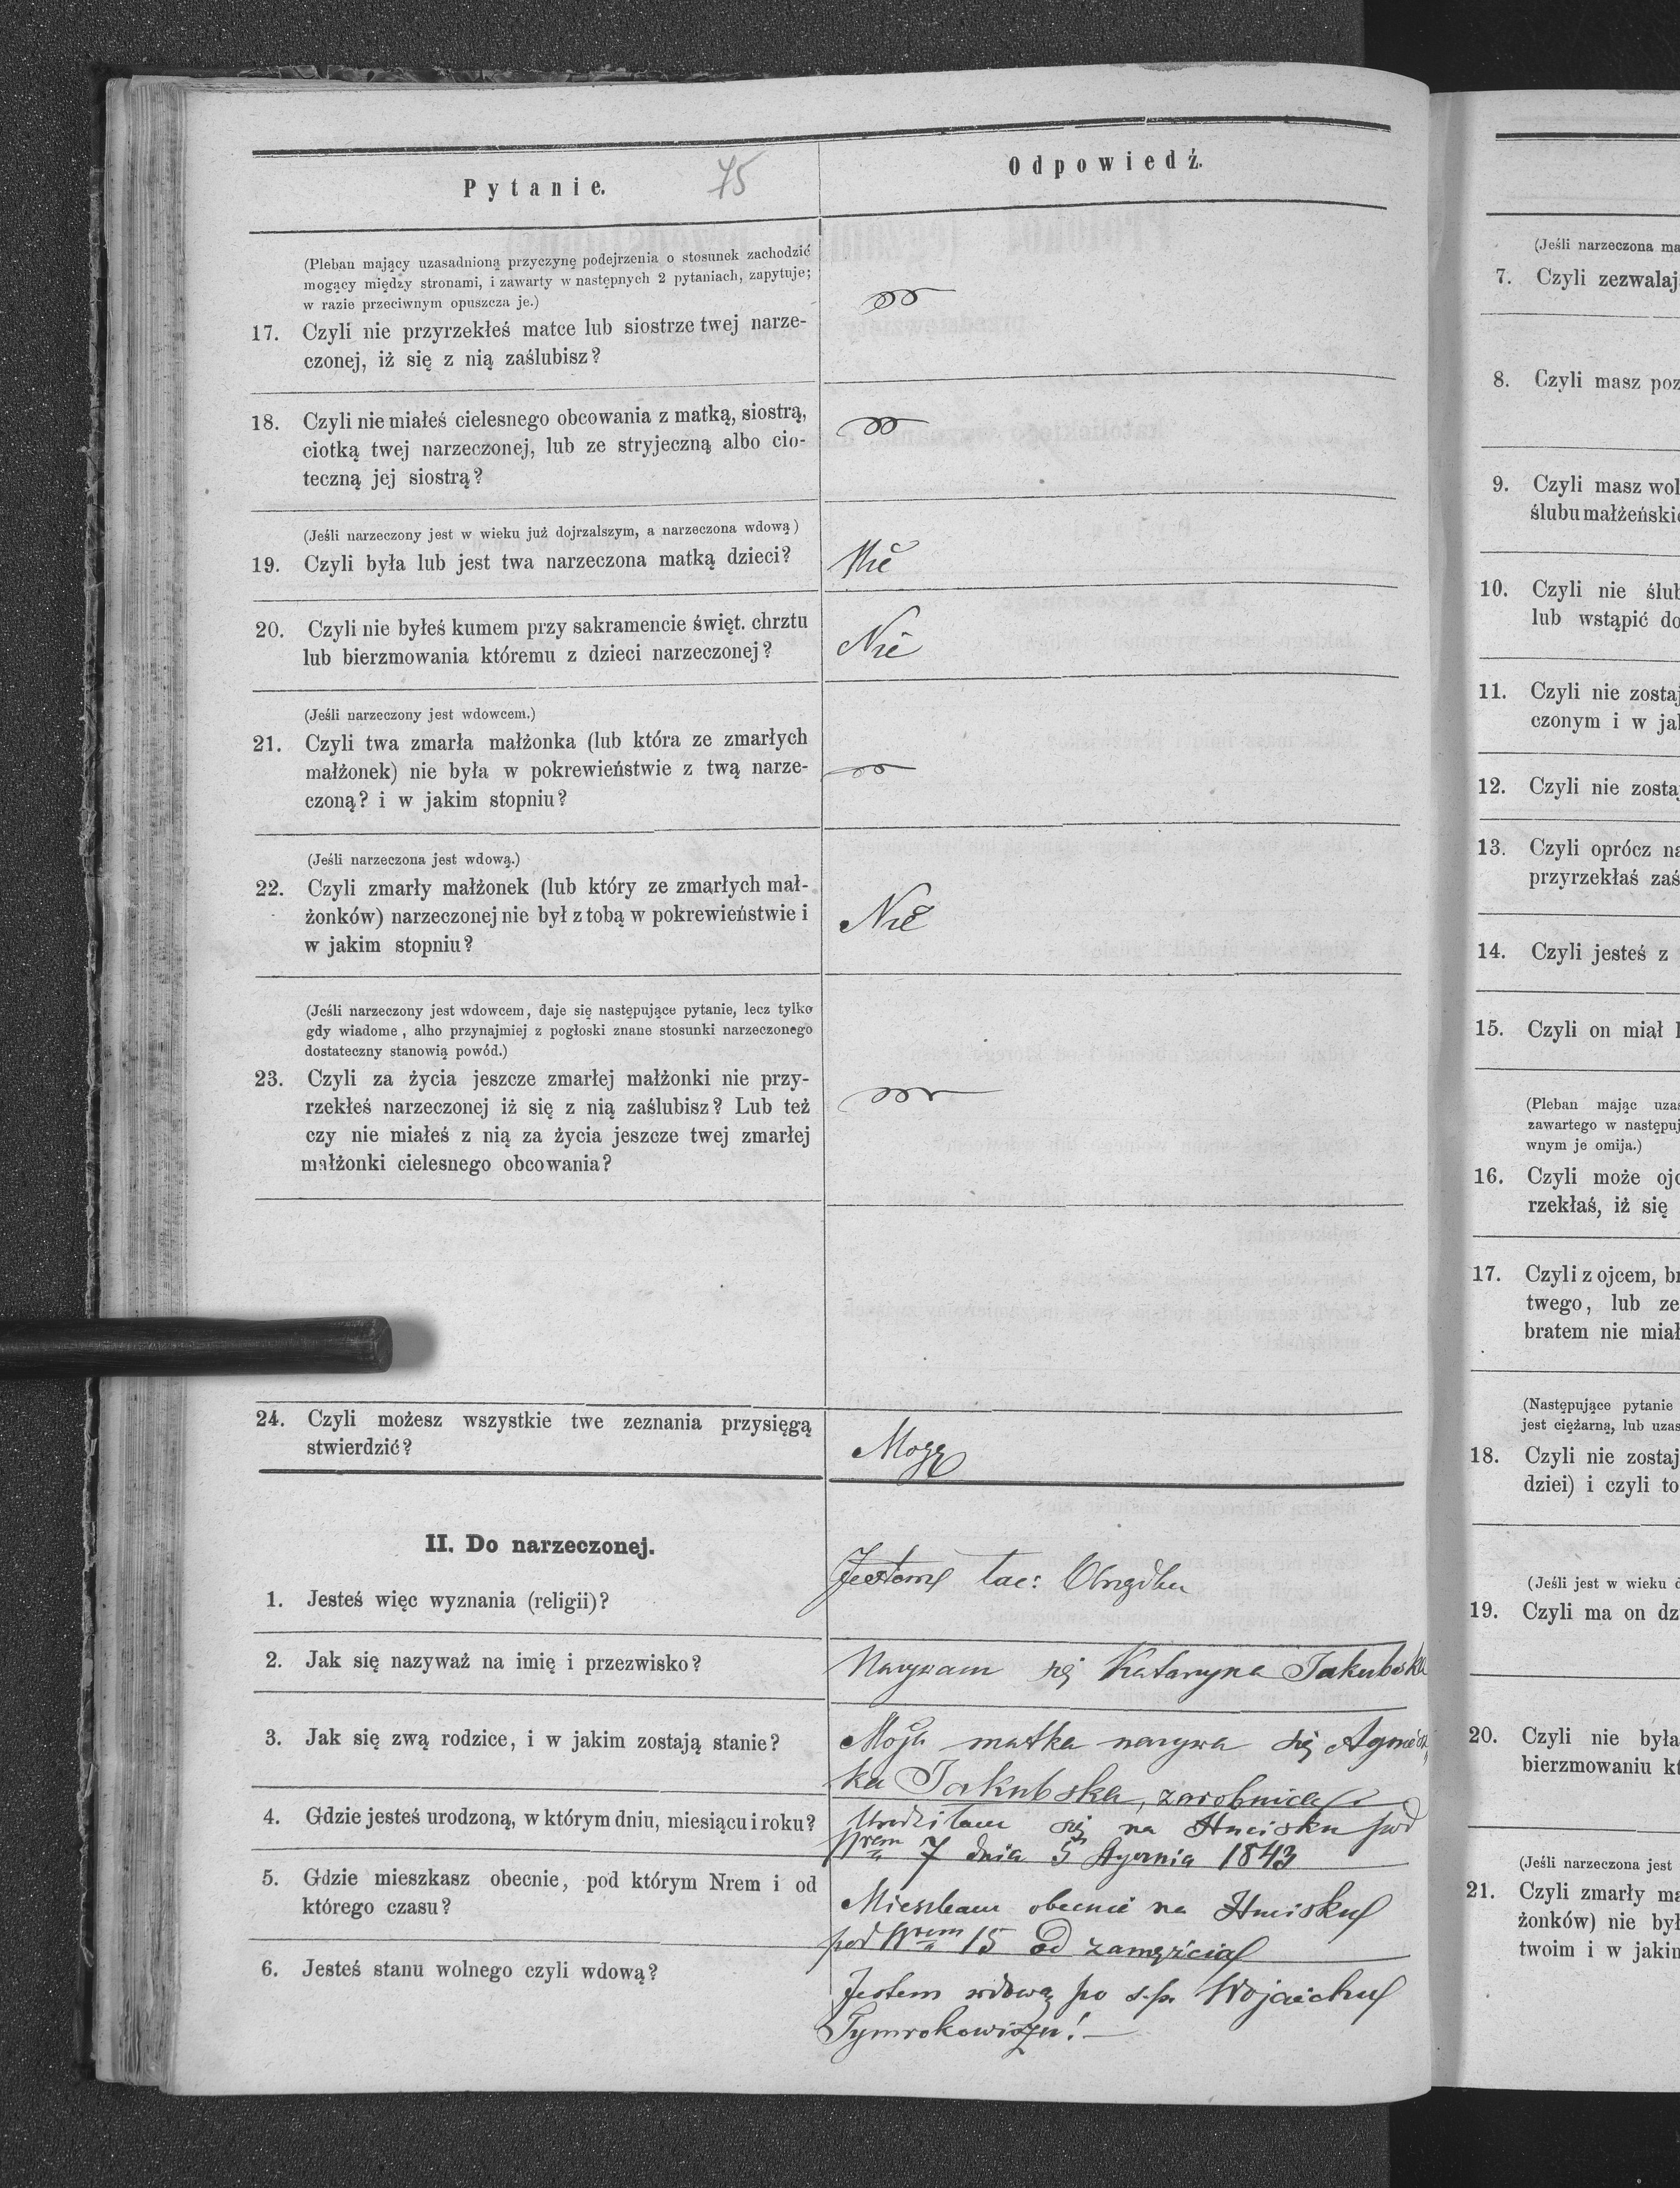 Pytanie.
75
Odpowiedź.
(Pleban mający uzasadnioną przyczynę podejrzenia o stosunek zachodzić
mogący między stronami, i zawarty w następnych 2 pytaniach, zapytuje;
w razie przeciwnym opuszcza je.)
17. Czyli nie przyrzekłeś matce lub siostrze twej narze-
czonej, iż się z nią zaślubisz?
18. Czyli nie miałeś cielesnego obcowania z matką, siostrą,
ciotką twej narzeczonej, lub ze stryjeczną albo cio-
teczną jej siostrą?
(Jeśli narzeczony jest w wieku już dojrzalszym, a narzeczona wdową)
19. Czyli była lub jest twa narzeczona matką dzieci?
Nie
20. Czyli nie byłeś kumem przy sakramencie święt. chrztu
lub bierzmowania któremu z dzieci narzeczonej?
Nie
(Jeśli narzeczony jest wdowcem.)
21. Czyli twa zmarła małżonka (lub która ze zmarłych
małżonek) nie była w pokrewieństwie z twą narze-
czoną? i w jakim stopniu?
(Jeśli narzeczona jest wdową.)
22. Czyli zmarły małżonek (lub który ze zmarłych mał-
żonków) narzeczonej nie był z tobą w pokrewieństwie i
w jakim stopniu?
Nie
(Jeśli narzeczony jest wdowcem, daje się następujące pytanie, lecz tylko
gdy wiadome, alho przynajmiej z pogłoski znane stosunki narzeczonego
dostateczny stanowią powód.)
23. Czyli za życia jeszcze zmarłej małżonki nie przy-
rzekłeś narzeczonej iż się z nią zaślubisz? Lub też
czy nie miałeś z nią za życia jeszcze twej zmarłej
małżonki cielesnego obcowania?
24. Czyli możesz wszystkie twe zeznania przysięgą
stwierdzić?
Mogę
II. Do narzeczonej.
1. Jesteś więc wyznania (religii)?
Jestem łac: Obrządku
2. Jak się nazyważ na imię i przezwisko?
Nazywam się Katarzyna Jakubska
3. Jak się zwą rodzice, i w jakim zostają stanie?
Moja matka nazywa się Agniesz
ka Jakubska, zarobnica
4. Gdzie jesteś urodzoną, w którym dniu, miesiącu i roku?
Urodziłam się na Hucisku pod
Nrem 7 dnia 5 Stycznia 1843
5. Gdzie mieszkasz obecnie, pod którym Nrem i od
którego czasu?
Mieszkam obecnie na Hucisku
pod Nrem 15 od zamęścia
6. Jesteś stanu wolnego czyli wdową?
Jestem wdową po s.p. Wojciechu
(Jeśli narzeczona ma
7. Czyli zezwalaj
8. Czyli masz poz
9. Czyli masz wol
ślubu małżeński
10. Czyli nie ślub
lub wstąpić do
11. Czyli nie zostaj
czonym i w jak
12. Czyli nie zosta
13. Czyli oprócz na
przyrzekłaś zaś
14. Czyli jesteś z
15. Czyli on miał l
(Pleban mając uzas
zawartego w następuj
wnym je omija.)
16. Czyli może ojc
rzekłaś, iż się
17. Czyli z ojcem, br
twego, lub ze
bratem nie miał
(Następujące pytanie
jest ciężarną, lub uzas
18. Czyli nie zostaj
dziei) i czyli to
(Jeśli jest w wieku d
19. Czyli ma on dz
20. Czyli nie była
bierzmowaniu kt
(Jeśli narzeczona jest
21. Czyli zmarły ma
żonków) nie był
twoim i w jakim